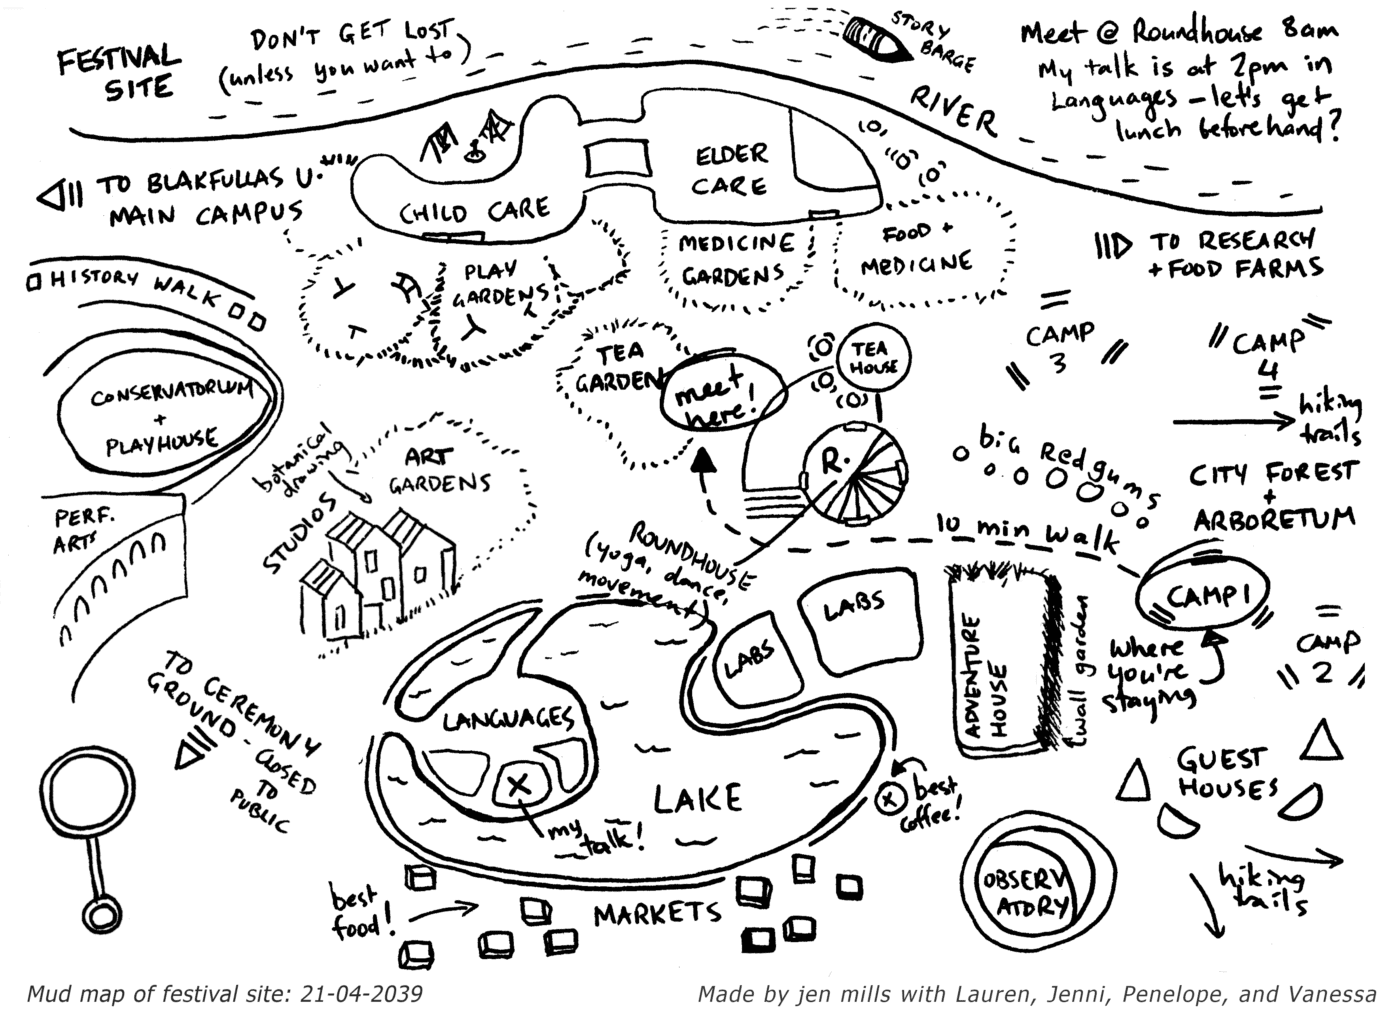 FESTIVAL
SITE
DON'T GET LOST
(unless you want to)
STORY
BARGE
RIVER
Meet @ Roundhouse 8am
My talk is at 2pm in
Languages – let's get
lunch beforehand?
TO BLAKFULLAS U.
MAIN CAMPUS
CHILD CARE
ELDER
CARE
MEDICINE
GARDENS
FOOD +
MEDICINE
TO RESEARCH
+ FOOD FARMS
HISTORY WALK
PLAY
GARDENS
CONSERVATORIUM
+
PLAYHOUSE
TEA
GARDEN
meet
here!
TEA
HOUSE
CAMP
3
CAMP
4
hiking
trails
R.
big Red gums
CITY FOREST
+
ARBORETUM
botanical
drawing
ART
GARDENS
STUDIOS
PERF.
ARTS
ROUNDHOUSE
(yoga, dance,
movement)
10 min walk
CAMP 1
LABS
LABS
ADVENTURE
HOUSE
wall garden
where
you're
staying
CAMP
2
TO CEREMONY
GROUND - CLOSED
TO
PUBLIC
LANGUAGES
X
my
talk!
LAKE
X
best
coffee!
GUEST
HOUSES
OBSERV
ATORY
hiking
trails
best
food!
MARKETS
Mud map of festival site: 21-04-2039
Made by jen mills with Lauren, Jenni, Penelope, and Vanessa